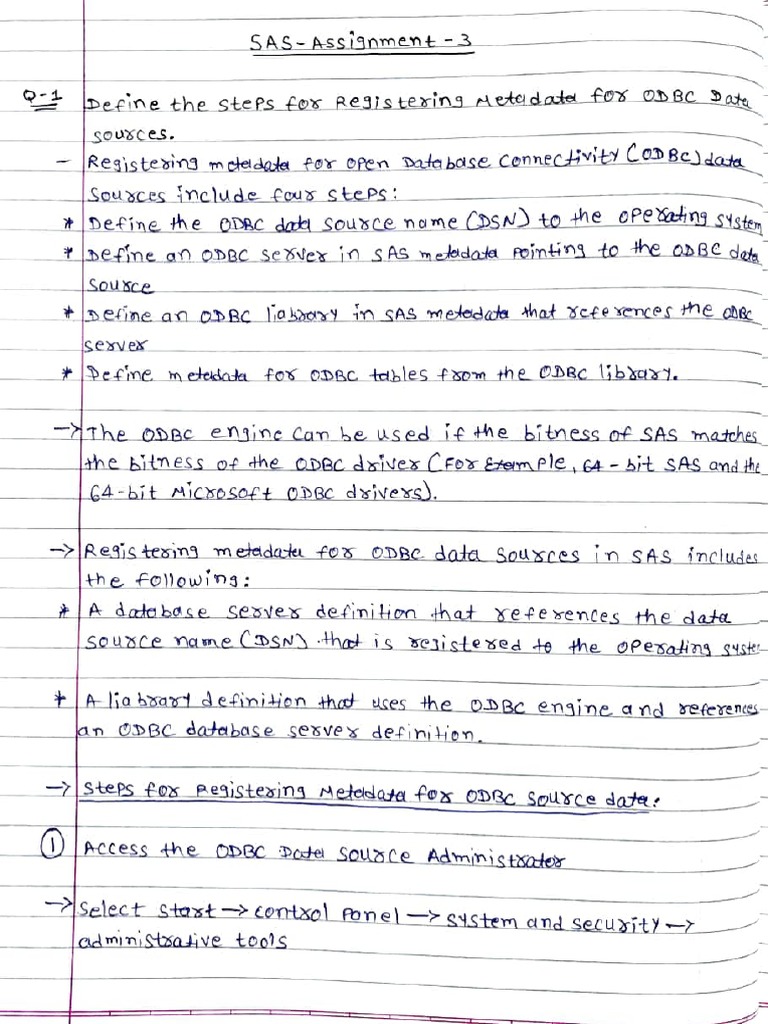 SAS-Assignment-3
Q-1 Define the steps for Registering Metadata for ODBC Data
sources.
- Registering metadata for open Database Connectivity (ODBC) data
sources include four steps:
* Define the ODBC data source name (DSN) to the operating system
* Define an ODBC server in SAS metadata pointing to the ODBC data
source
* Define an ODBC liabrary in SAS metadata that references the ODBC
server
* Define metadata for ODBC tables from the ODBC library.
→ The ODBC engine can be used if the bitness of SAS matches
the bitness of the ODBC driver (For Example, 64-bit SAS and the
64-bit Microsoft ODBC drivers).
→ Registering metadata for ODBC data sources in SAS includes
the following:
* A database server definition that references the data
source name (DSN) that is registered to the operating system
* A liabrary definition that uses the ODBC engine and references
an ODBC database server definition.
→ Steps for Registering Metadata for ODBC source data:
① Access the ODBC Data Source Administrator
→ Select start → control panel → system and security →
administrative tools